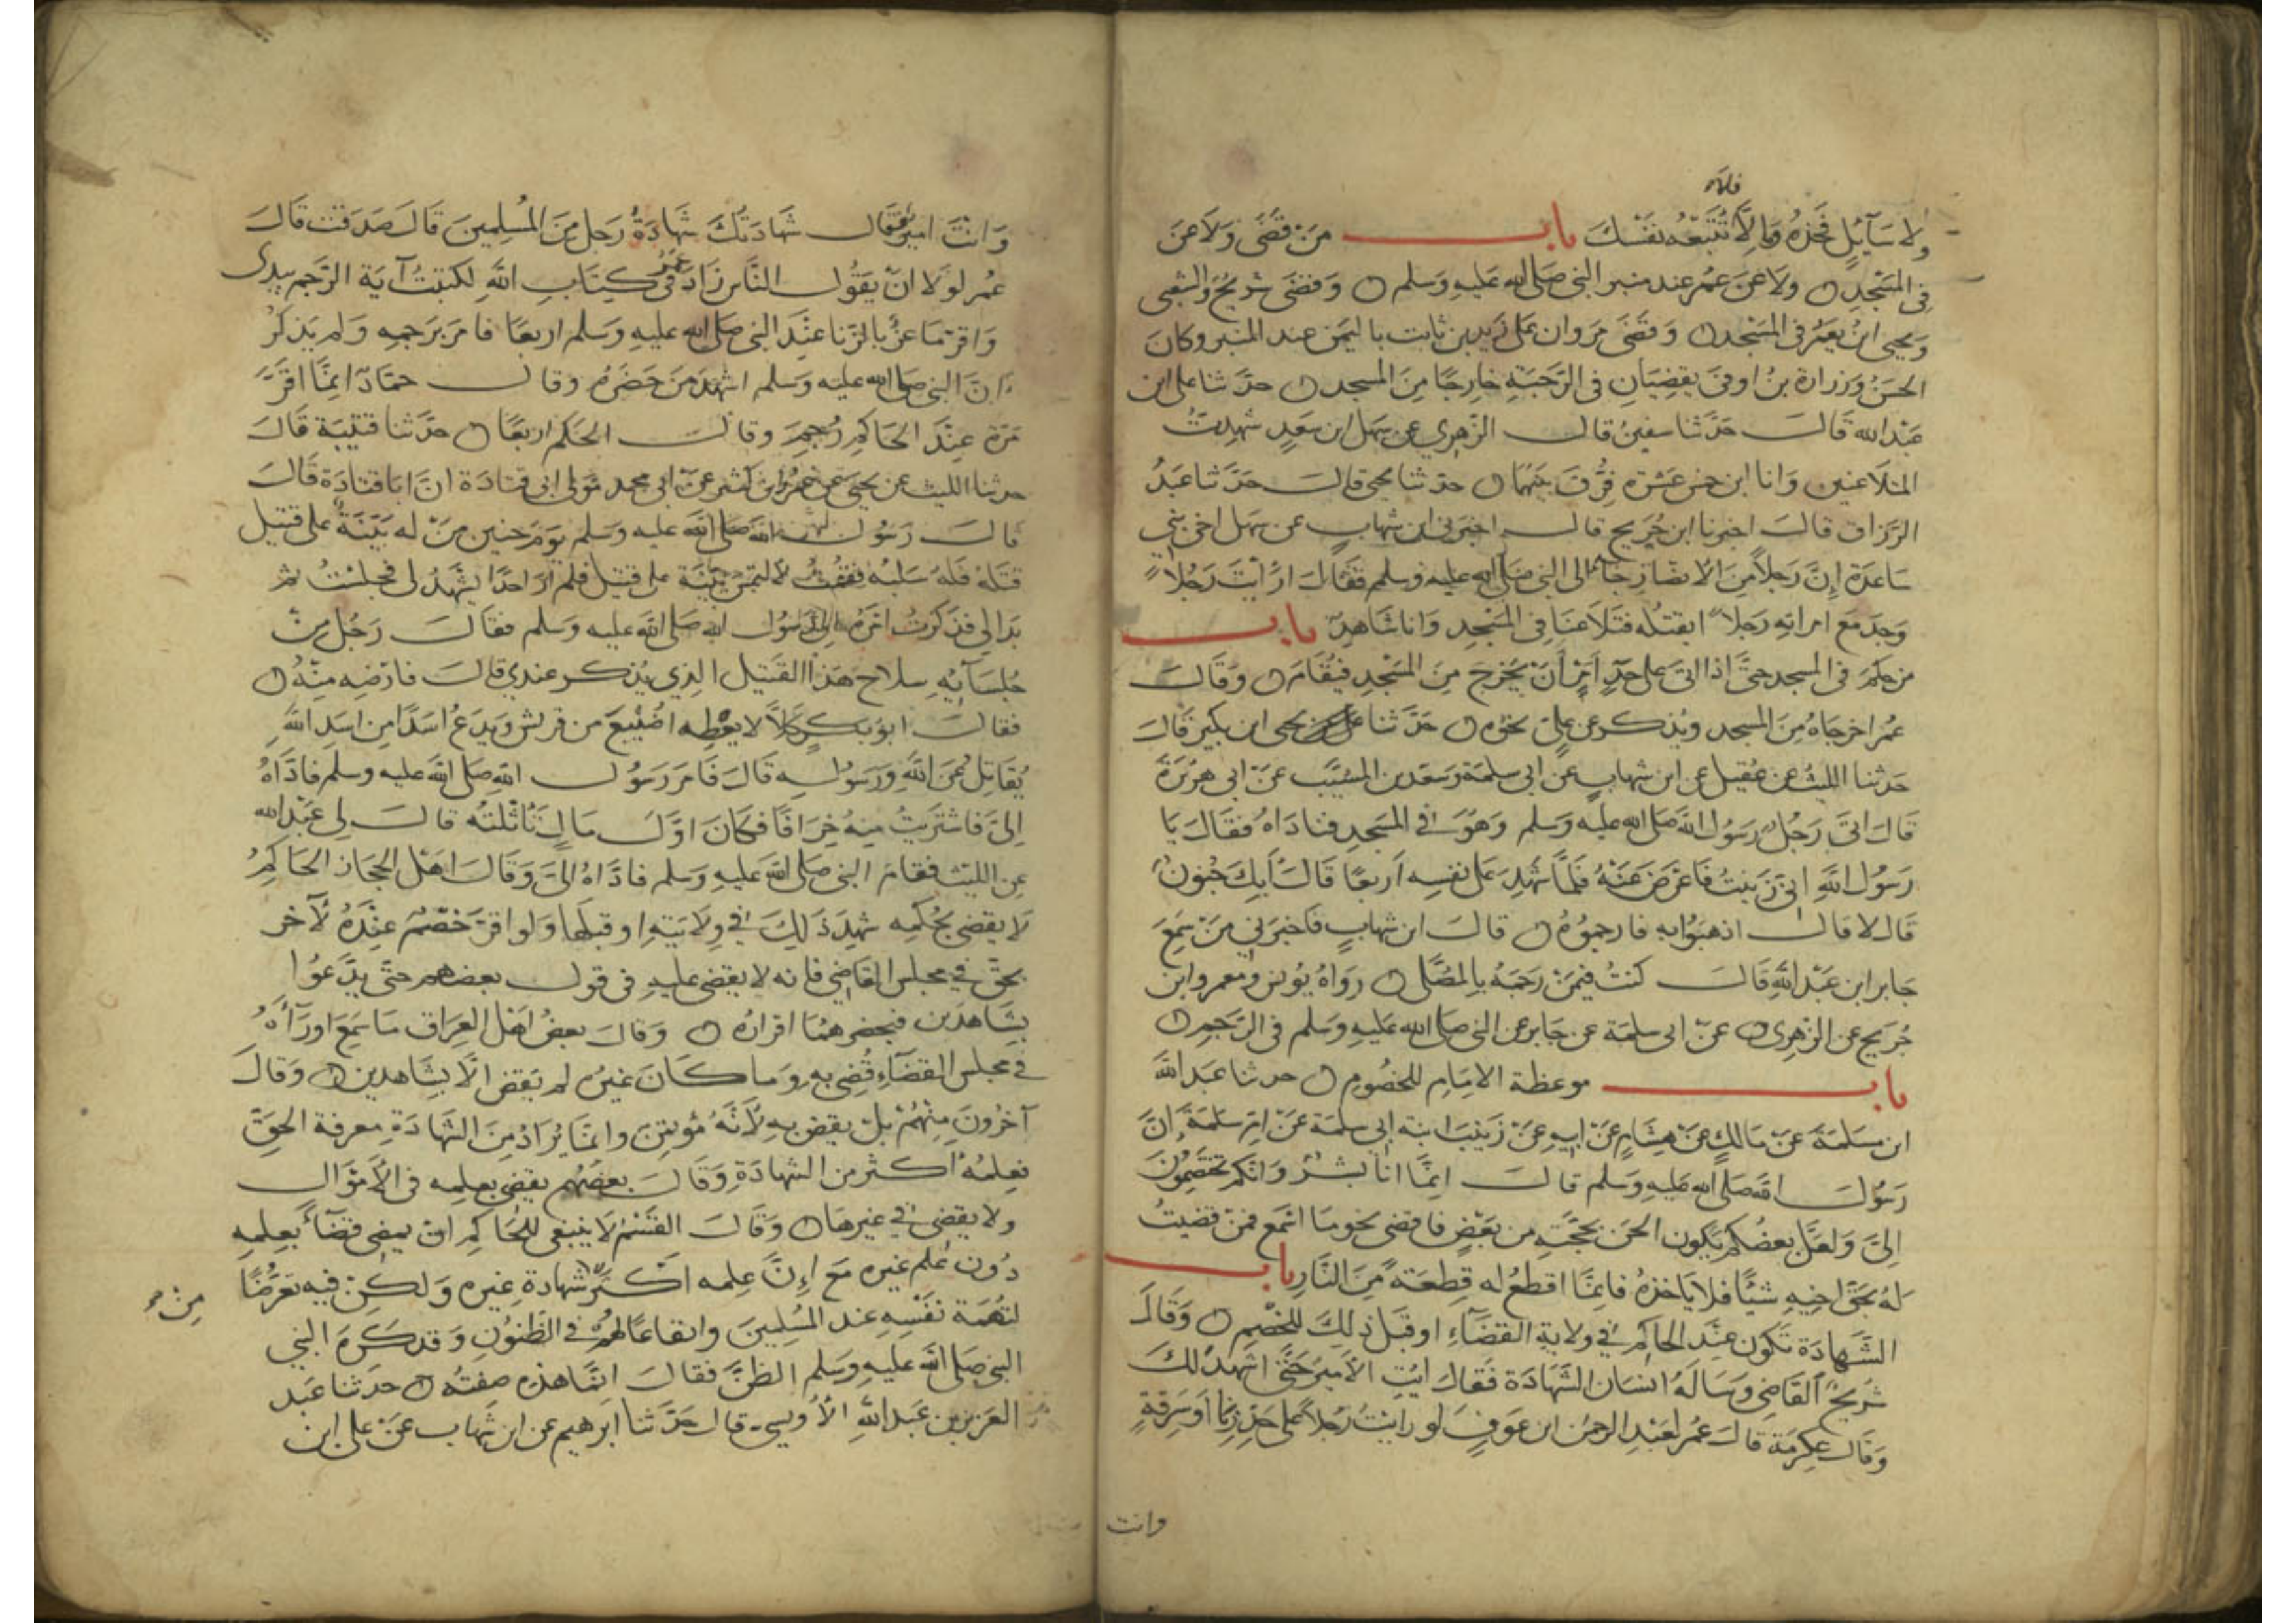 فلا
ولا سآيل فخذه وما لا تتبعه نفسك باب من قضى ولاعن
في المسجد ولاعن عمر عند منبر النبي صلى الله عليه وسلم وقضى شريح والشعبي
ويحيى ابن يعمر في المسجد وقضى مروان على زيد بن ثابت باليمن عند المنبر وكان
الحسن وزرارة بن اوفى يقضيان في الرحبة خارجا من المسجد حدثنا على ابن
عبد الله قال حدثنا سفين قال الزهري عن سهل ابن سعد شهدت
المتلاعنين وانا ابن خمس عشرة فرق بينهما حدثنا يحيى قال حدثنا عبد
الرزاق قال اخبرنا ابن جريج قال اخبرني ابن شهاب عن سهل اخي بني
ساعدة إن رجلا من الانصار جاء الى النبي صلى الله عليه وسلم فقال ارايت رجلا
وجد مع امراته رجلا ايقتله فتلاعنا في المسجد وانا شاهد باب
من حكم في المسجد حتى اذا اتى على حد أمر أن يخرج من المسجد فيقام وقال
عمر اخرجاه من المسجد ويذكر عن علي نحوه حدثنا يحيى ابن بكير قال
حدثنا الليث عن عقيل عن ابن شهاب عن ابي سلمة وسعد بن المسيب عن ابي هريرة
قال اتى رجل رسول الله صلى الله عليه وسلم وهو في المسجد فناداه فقال يا
رسول الله اني زنيت فاعرض عنه فلما شهد على نفسه اربعا قال أبك جنون
قال لا قال اذهبوا به فارجموه قال ابن شهاب فاخبرني من سمع
جابر ابن عبد الله قال كنت فيمن رجمه بالمصلى رواه يونس ومعمر وابن
جريج عن الزهري عن ابى سلمة عن جابر عن النبي صلى الله عليه وسلم في الرجم
باب موعظة الامام للخصوم حدثنا عبد الله
ابن مسلمة عن مالك عن هشام عن ابيه عن زينب ابنة ابي سلمة عن ام سلمة ان
رسول الله صلى الله عليه وسلم قال انما انا بشر وانكم تختصمون
الى ولعل بعضكم يكون الحن بحجته من بعض فاقضى نحو ما اسمع فمن قضيت
له بحق اخيه شيئا فلا ياخذه فانما اقطع له قطعة من النار باب
الشهادة تكون عند الحاكم في ولاية القضاء او قبل ذلك للخصم وقال
شريح القاضي وساله انسان الشهادة فقال ايت الامير حتى اشهد لك
وقال عكرمة قال عمر لعبد الرحمن ابن عوف لو رايت رجلا على حد زنا او سرقة
وانت
وانت امير فقال شهادتك شهادة رجل من المسلمين قال صدقت قال
عمر لولا ان يقول الناس زاد عمر في كتاب الله لكتبت آية الرجم بيدى
واقر ماعز بالزنا عند النبي صلى الله عليه وسلم اربعا فامر برجمه ولم يذكر
ان النبي صلى الله عليه وسلم اشهد من حضره وقال حماد انما اقر
مرة عند الحاكم رجم وقال الحكم اربعا حدثنا قتيبة قال
حدثنا الليث عن يحيى عن عمر ابن كثير عن ابي محمد مولى ابي قتادة ان ابا قتادة قال
قال رسول الله صلى الله عليه وسلم يوم حنين من له بينة على قتيل
قتله فله سلبه فقمت لالتمس بينة على قتيل فلم ار احدا يشهد لى فجلست ثم
بدا لي فذكرت امره الى رسول الله صلى الله عليه وسلم فقال رجل من
جلسآيه سلاح هذا القتيل الذي يذكر عندي قال فارضه منه
فقال ابو بكر كلا لا يعطه اضيبع من قريش ويدع اسدا من اسد الله
يقاتل عن الله ورسوله قال فامر رسول الله صلى الله عليه وسلم فاداه
الى فاشتريت منه خرافا فكان اول مال تاثلته قال لى عبد الله
عن الليث فقام النبي صلى الله عليه وسلم فاداه الى وقال اهل الحجاز الحاكم
لا يقضي بحكمه شهد ذلك في ولايته او قبلها ولو اقر خصم عنده لآخر
بحق في مجلس القاضي فانه لا يقضى عليه في قول بعضهم حتى يدعوا
بشاهدين فيحضرهما اقراره وقال بعض اهل العراق ما سمع اورآه
في مجلس القضاء قضى به وما كان غيره لم يقض الا بشاهدين وقال
آخرون منهم بل يقضى به لأنه مؤتمن وانما يراد من الشهادة معرفة الحق
فعلمه اكثر من الشهادة وقال بعضهم يقضى بعلمه في الأموال
ولا يقضى في غيرها وقال القسم لا ينبغى للحاكم ان يمضى قضآء بعلمه
دون علم غيره مع إن علمه اكثر شهادة غيره ولكن فيه تعرضا
من
لتهمة نفسه عند المسلمين وايقاعا لهم في الظنون وقد كره النبي
النبي صلى الله عليه وسلم الظن فقال انما هذه صفته حدثنا عبد
العزيز بن عبد الله الأويسي قال حدثنا ابرهيم عن ابن شهاب عن على ابن